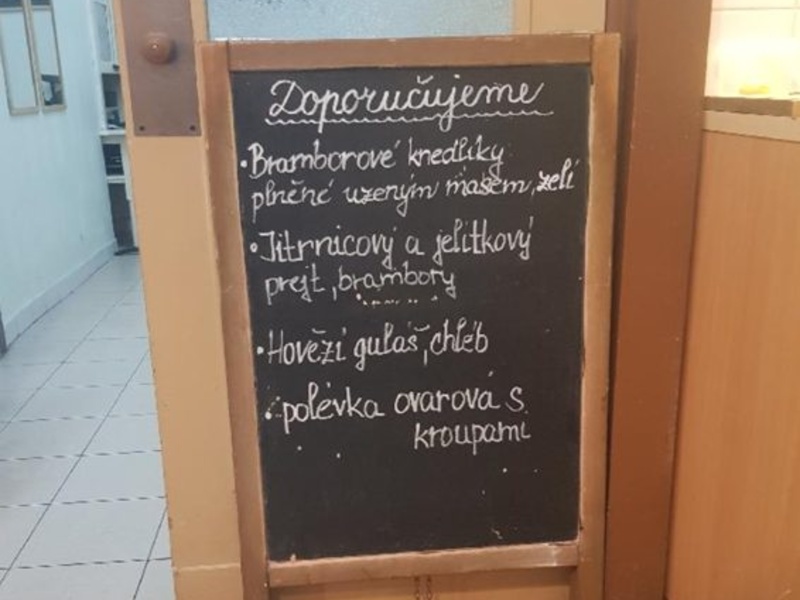 Doporučujeme
• Bramborové knedlíky
plněné uzeným masem, zelí
• Jitrnicový a jelítkový
prejt, brambory
• Hovězí guláš, chléb
• polévka ovarová s
kroupami